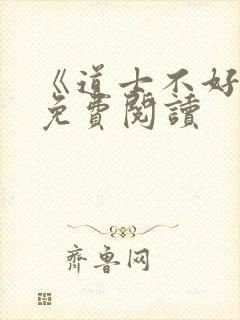 《道士不好
免費閱讀
齊鲁网